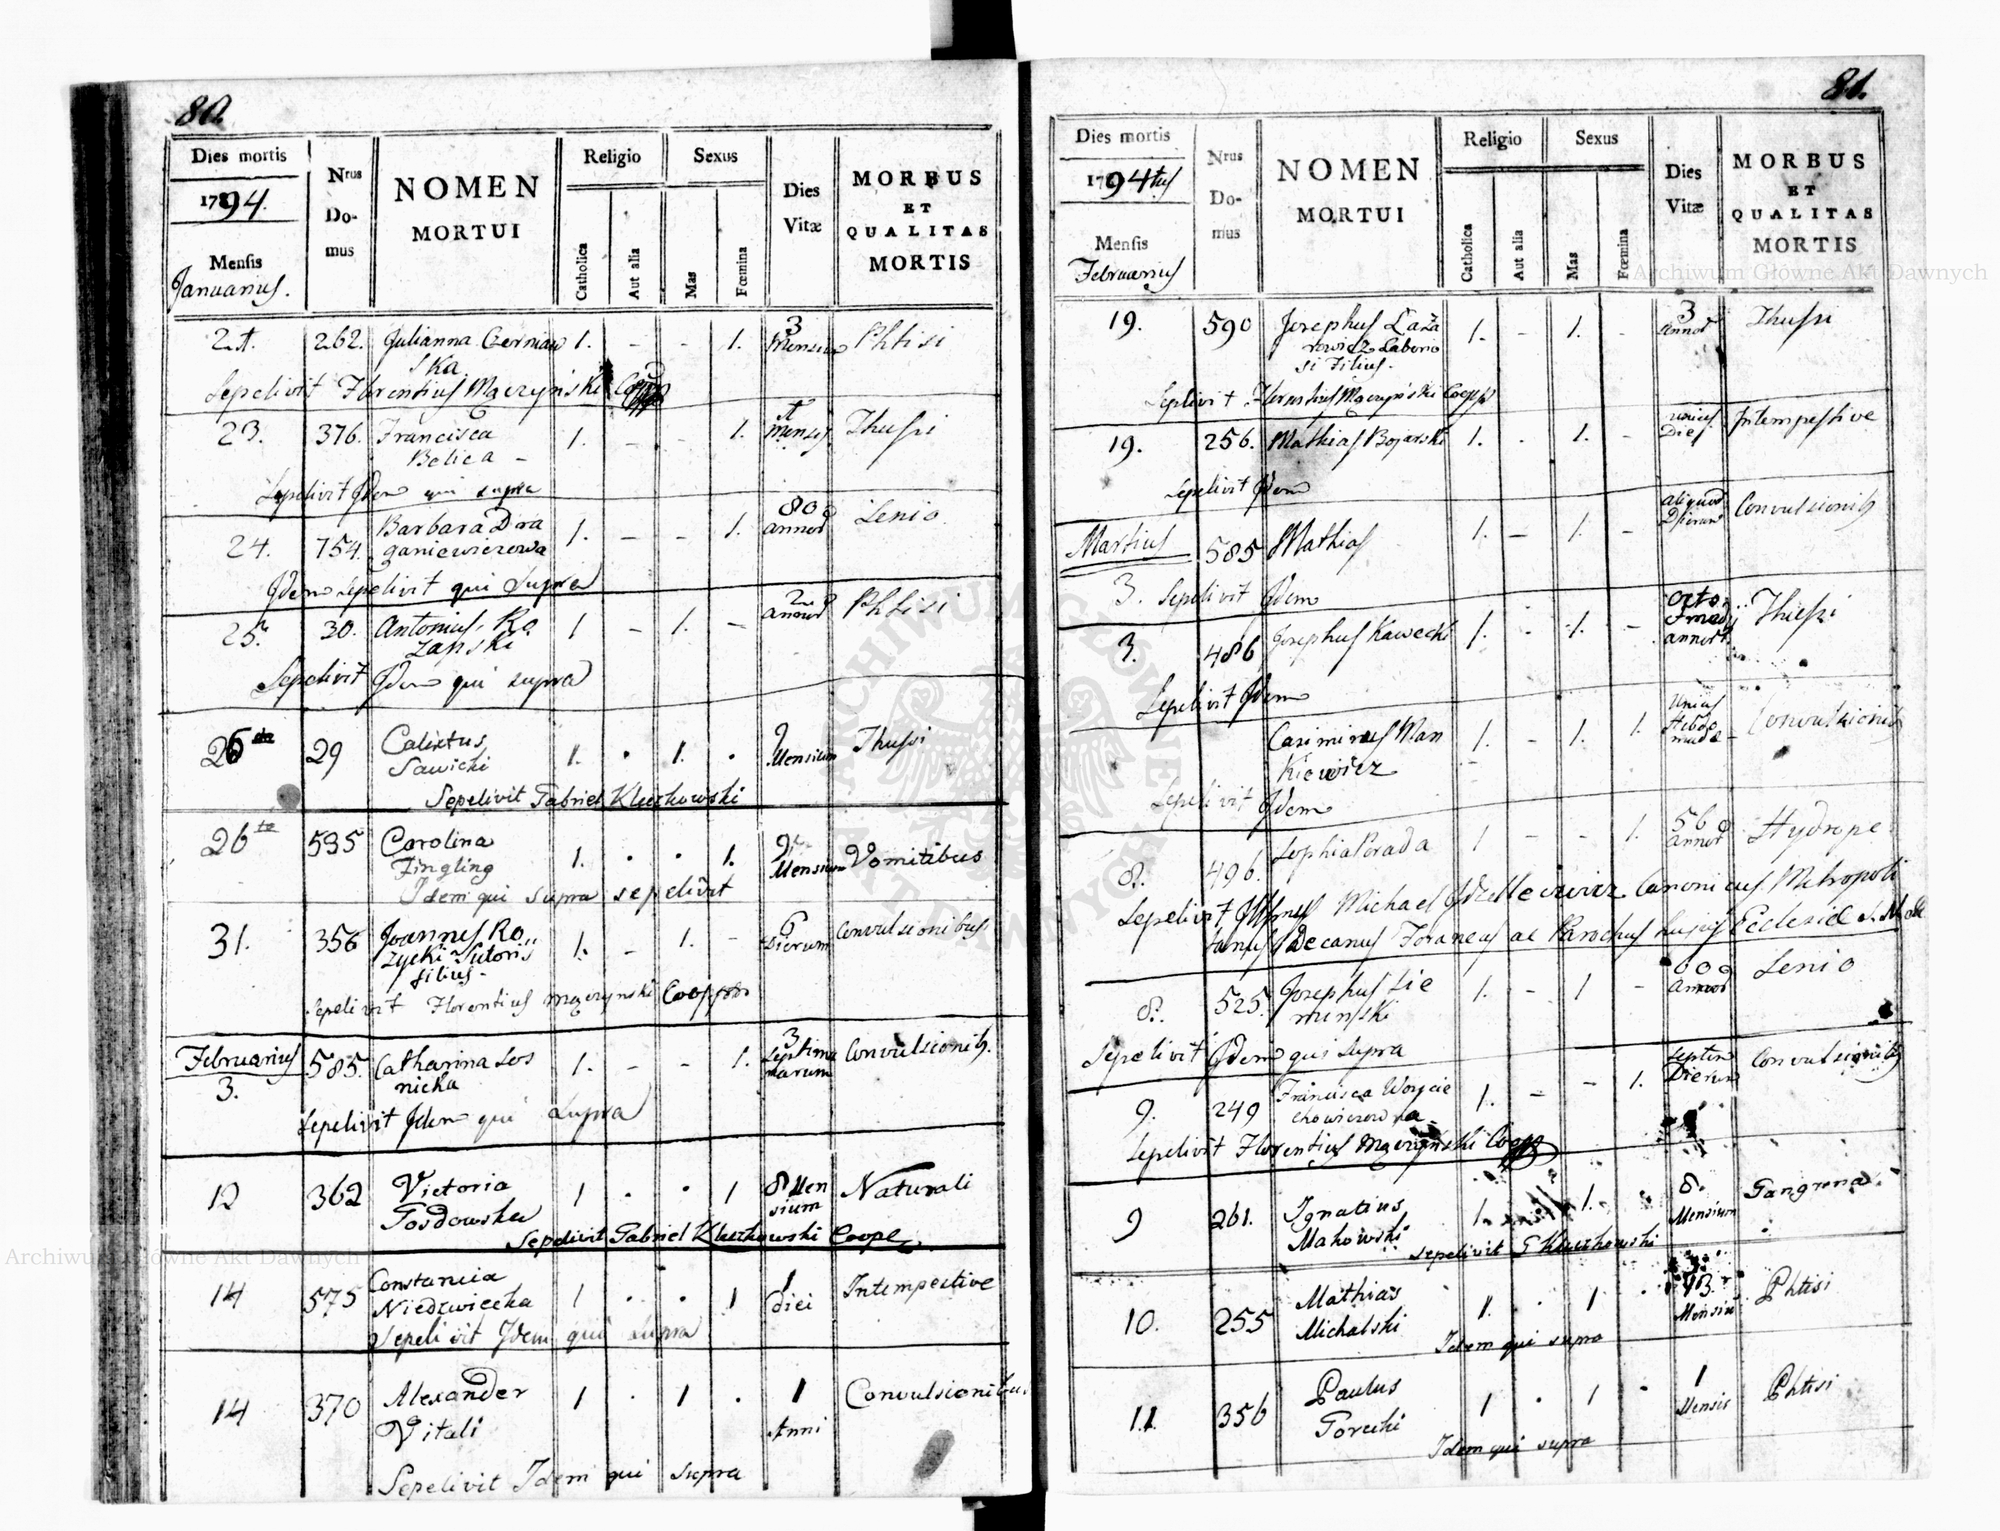 80.
Dies mortis
1794.
Mensis
Januarius.
Nrus
Do-
mus
NOMEN
MORTUI
Religio
Catholica
Aut alia
Sexus
Mas
Fœmina
Dies
Vitæ
MORBUS
ET
QUALITAS
MORTIS
21. 262. Julianna Czerniaw 1. - - 1. 3 Mensium Phtisi
ska
Sepelivit Florentius Mączyński
23. 376. Francisca 1. - - 1. Mensis Thussi
Belica -
Sepelivit Idem qui supra
24. 754. Barbara Dra 1. - - 1. 80 annor Senio
ganiewiczowa
Idem sepelivit qui supra
25. 30. Antonius Ro 1 - 1. - 2 annor Phtisi
zapski
Sepelivit Idem qui supra
26 29 Calixtus 1. . 1. . 9 Mensium Thussi
Sawicki
Sepelivit Gabriel Kluczkowski
26ta 535 Carolina 1. . . 1. Mensium Vomitibus
Zingling
Idem qui supra sepelivit
31. 356 Joannes Ro 1. - 1. - 6 Dierum Convulsionibus
zycki Sutoris
filius -
Sepelivit Florentius Mączyński Cooper
Februarius 585. Catharina Sos 1. - - 1. 3 septima Convulsionib.
3. nicka marum
Sepelivit Idem qui supra
12 362 Victoria 1 . . 1 8 Men Naturali
Gosdowska sium
Sepelivit Gabriel Kluczkowski Coope
14 575 Constancia 1 . . 1 1 diei Intempestive
Niedzwiecka
Sepelivit Idem qui supra
14 370 Alexander 1 . 1 . 1 Anni Convulsionibus
Vitali
Sepelivit Idem qui supra
81.
Dies mortis
1794tus
Mensis
Februarius
Nrus
Do-
mus
NOMEN
MORTUI
Religio
Catholica
Aut alia
Sexus
Mas
Fœmina
Dies
Vitæ
MORBUS
ET
QUALITAS
MORTIS
19. 590 Josephus Laza 1. - 1. - 3 Annor Thussi
rowicz Laborio
si Filius.
Sepelivit Florentius Mączyński Coopr
19. 256. Mathias Bojarski 1. - 1. - unius Diei Intempestive
Sepelivit Idem
Martius 585 Mathias 1. - 1. - aliquod Dierum Convulsionib
3. Sepelivit Idem
3. 486 Josephus Kawecki 1. - 1. - octo annor Thussi
Sepelivit Idem
Casimirus Man 1. - 1. 1. Unius Hebdo Convulsionib
kiewicz madæ
Sepelivit Idem
8. 496. Sophia Porada 1 - - 1. 56 annor Hydrope
Sepelivit Michael Canonicus Metropoli
tanus Decanus Foraneus ac Parochus hujus Ecclesiæ
8. 525. Josephus Sie 1. - 1 - 60 Annor Senio
minski
Sepelivit Idem qui supra
9. 249 Francisca Woycie 1. - - 1. septem Dierum Convulsionib
chowiczowna
Sepelivit Florentius Mączyński Coopr
9 261. Ignatius 1. 1. . 8. Mensium Gangrena
Makowski
Sepelivit G Kluczkowski
10. 255 Mathias 1. . 1 . Mensium Phtisi
Michalski
Idem qui supra
11. 356 Paulus 1 . 1 . 1 Mensis Phtisi
Gorecki
Idem qui supra
Archiwum Główne Akt Dawnych
Archiwum Główne Akt Dawnych
ARCHIWUM GŁÓWNE AKT DAWNYCH